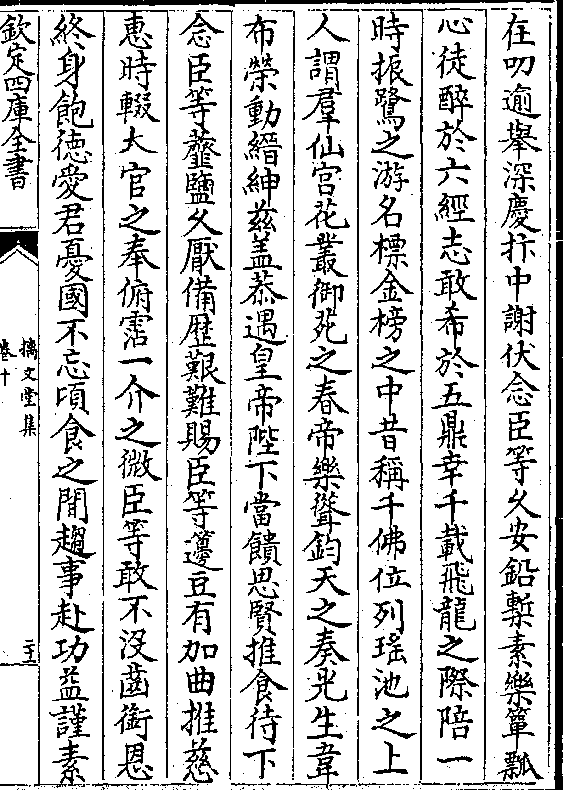 在叨逾舉深慶抃中謝伏念臣等久安鉛槧素樂簞瓢
心徒醉於六經志敢希於五鼎幸千載飛龍之際陪一
時振鷺之游名標金榜之中昔稱千佛位列瑤池之上
人謂羣仙宫花叢御苑之春帝樂聳鈞天之奏光生韋
布榮動縉紳兹盖恭遇皇帝陛下當饋思賢推食待下
念臣等虀鹽久厭備歴艱難賜臣等籩豆有加曲推慈
惠時輟大官之奉俯霑一介之微臣等敢不没齒銜恩
終身飽徳愛君憂國不忘頃食之間趨事赴功益謹素
欽定四庫全書
摛文堂集
卷十
二十五